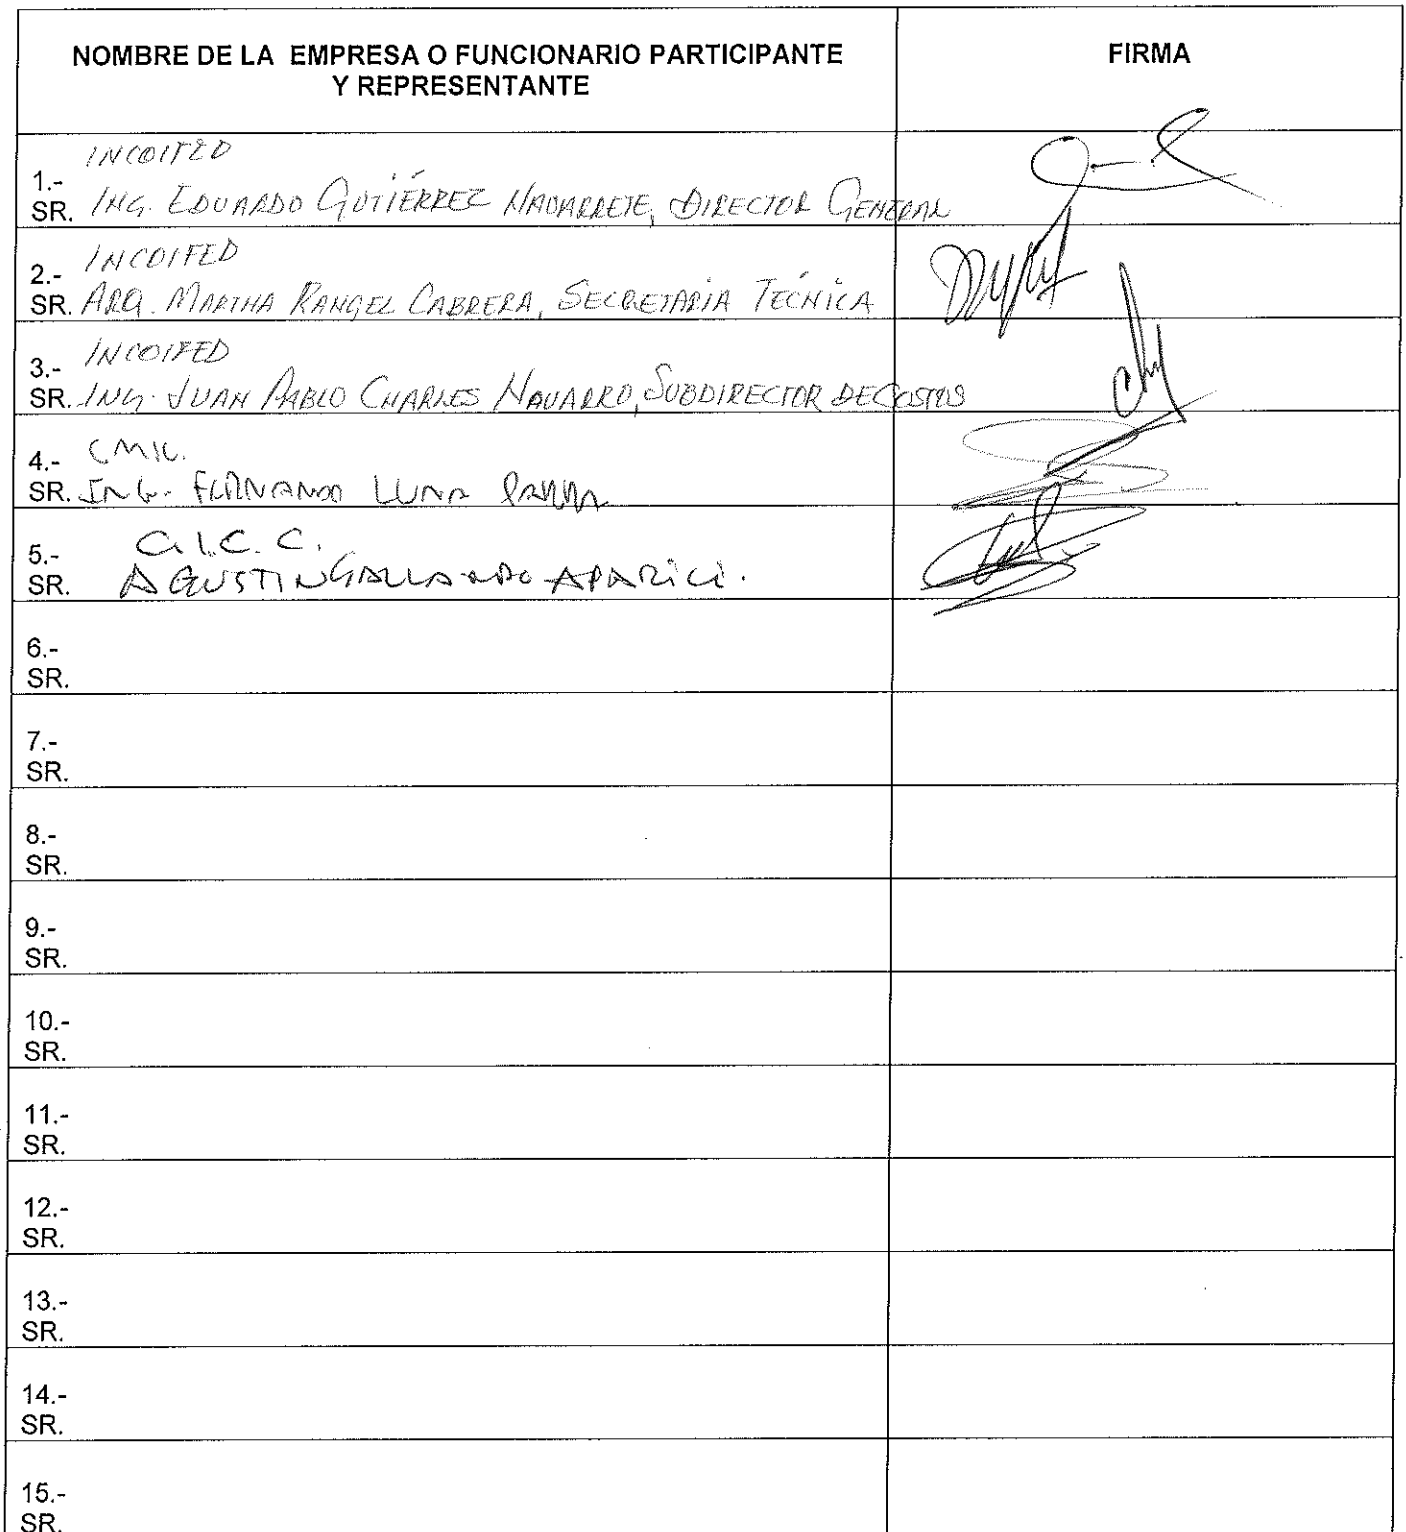 NOMBRE DE LA EMPRESA O FUNCIONARIO PARTICIPANTE
Y REPRESENTANTE
FIRMA
INCOIFED
1.-
SR. ING. EDUARDO GUTIÉRREZ NAVARRETE, DIRECTOR GENERAL
INCOIFED
2.-
SR. ARQ. MARTHA RANGEL CABRERA, SECRETARIA TÉCNICA
INCOIFED
3.-
SR. ING. JUAN PABLO CHARLES NAVARRO, SUBDIRECTOR DE COSTOS
4.- CMIC.
SR. ING. FERNANDO LUNA
5.- C.I.C.C.
SR. AGUSTIN GALLARDO APARICI.
6.-
SR.
7.-
SR.
8.-
SR.
9.-
SR.
10.-
SR.
11.-
SR.
12.-
SR.
13.-
SR.
14.-
SR.
15.-
SR.